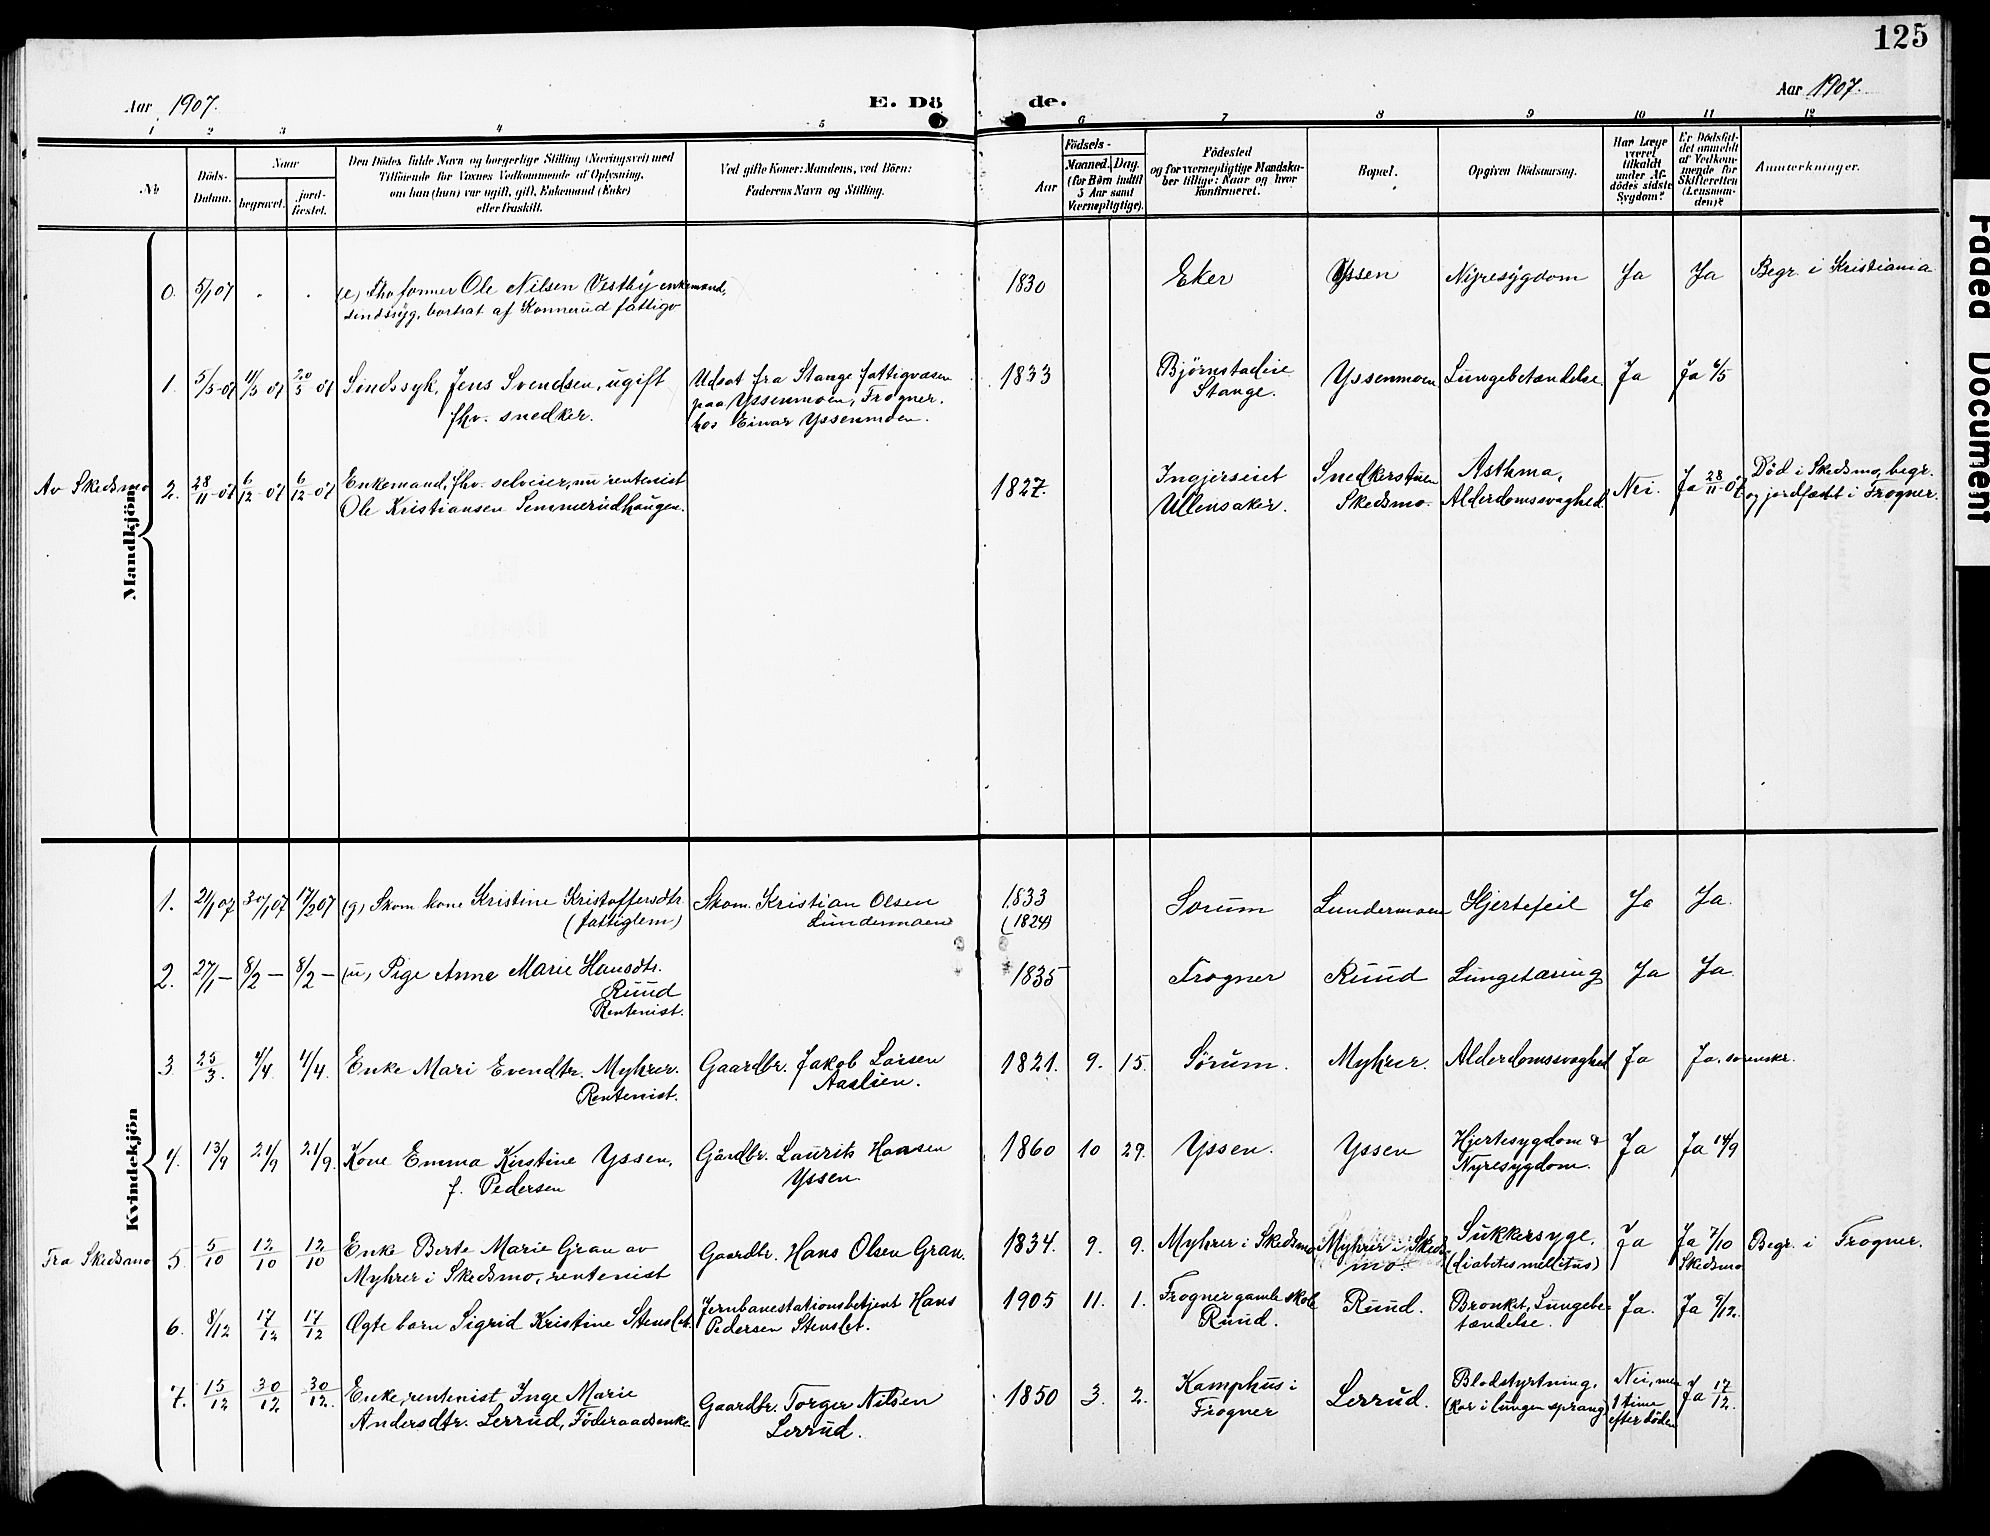 125
Aar 1907. E. Dö de. Aar 1907.
1 2 3 4 5 6 7 8 9 10 11 12
No
Döds-Datum.
Naar
begravet.
jord-fæstet.
Den Dödes fulde Navn og borgerlige Stilling (Næringsvei) med
Tilföiende for Voxnes Vedkommende af Oplysning,
om han (hun) var ugift, gift, Enkemand (Enke)
eller fraskilt.
Ved gifte Koner: Mandens, ved Börn:
Faderens Navn og Stilling.
Födsels-
Aar
Maaned. Dag.
(for Börn indtil
5 Aar samt
Værnepligtige).
Födested
og for værnepligtige Mandska-
ber tillige: Naar og hvor
konfirmeret.
Bopæl.
Opgiven Dödsaarsag.
Har Læge
været
tilkaldt
under Af-
dödes sidste
Sygdom?
Er Dödsfal-
det anmeldt
af Vedkom-
mende for
Skifteretten
(Lensman-
den)?
Anmærkninger.
Mandkjön
0. 5/1 07 . . (e) Fho former Ole Nilsen Vestby enkemand, 1830 Eker Yssen Nyresygdom Ja Ja Begr. i Kristiania
sindssyg, bortsat af Konnerud fattigv
1. 5/5-07 11/5 07 20/5 07 Sindssyk, Jens Svendsen, ugift Udsat fra Stange fattigvæsen 1833 Björnstadeie Yssenmoen Lungebetændelse. Ja Ja 6/5
fhv. snedker. paa Yssenmoen, Frogner, Stange.
hos Einar Yssenmoen.
Av Skedsmo 2. 28/11-07 6/12-07 6/12 07 Enkemand, fhv. selveier, nu rentenist 1827. Ingjerseiet Snedkerstuen Asthma, Nei. Ja 28/11-07 Död i Skedsmo, begr.
Ole Kristiansen Semmerudhaugen. Ullensaker. Skedsmo. Alderdomssvaghed og jordfæstet i Frogner.
Kvindekjön
1. 21/1 07 30/1 07 17/2 07 (g) Skom. kone Kristine Kristoffersdtr. Skom. Kristian Olsen 1833 Sorum Lundermoen Hjertefeil Ja Ja.
(fattiglem) Lundermoen (1824)
2. 27/1 - 8/2 - 8/2 - (u, Pige Anne Marie Hansdtr. 1835 Frogner Ruud Lungetæring Ja Ja.
Ruud
Rentenist.
3. 25/3. 4/4. 4/4. Enke Mari Evendtr. Myhrer. Gaardbr. Jakob Larsen 1821. 9. 15. Sørum. Myhrer. Alderdomssvaghed Ja Ja. sorenskr.
Rentenist. Aaslien.
4. 13/9 21/9 21/9. Kone Emma Kirstine Yssen, Gårdbr. Laurits Hansen 1860 10 29. Yssen. Yssen Hjertesygdom & Ja Ja 14/9
f. Pedersen Yssen. Nyresygdom.
Fra Skedsmo 5. 5/10 12/10 12/10 Enke Berte Marie Gran av Gaardbr. Hans Olsen Gran. 1834. 9. 9. Myhrer i Skedsmo Myhrer i Skeds- Sukkersyge. Ja Ja 7/10 Begr. i Frogner.
Myhrer i Skedsmo, rentenist mo. (diabetes mellitus) Skedsmo
6. 8/12 17/12 17/12 Ægte barn Sigrid Kristine Stenslet. Jernbanestationsbetjent Hans 1905 11. 1. Frogner gamle skole Ruud. Bronkit, Lungebe- Ja. Ja 9/12.
Pedersen Stenslet. Ruud. tændelse.
7. 15/12 30/12 30/12. Enke, rentenist Inge Marie Gaardbr. Torger Nilsen 1850 3. 2. Kamphus i Lerrud. Blodstyrtning. Nei, men Ja 17/12.
Andersdtr. Lerrud, Föderaadsenke Lerrud. Frogner (kar i lungen sprang) 1 time
efter döden
Faded Document